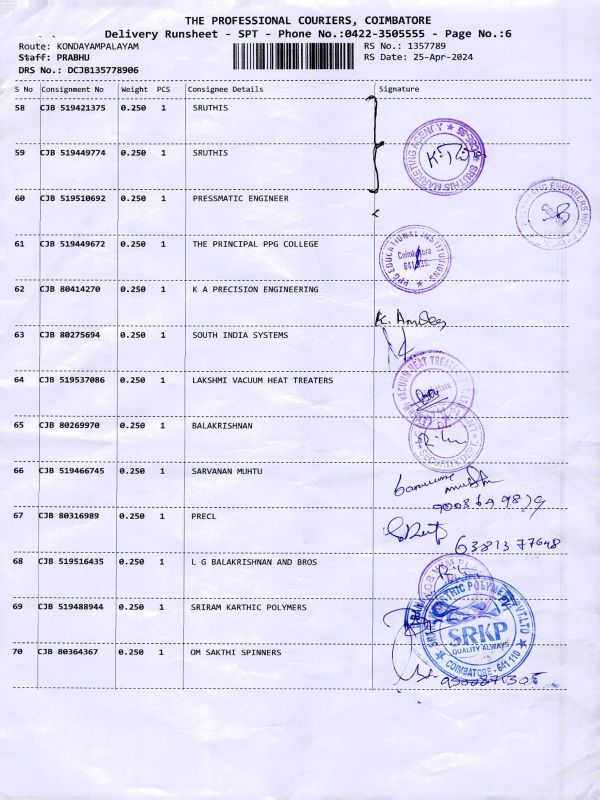 THE PROFESSIONAL COURIERS, COIMBATORE
Delivery Runsheet - SPT - Phone No.:0422-3505555 - Page No.:6
Route: KONDAYAMPALAYAM
RS No.: 1357789
Staff: PRABHU
RS Date: 25-Apr-2024
DRS No.: DCJB135778906
S No Consignment No Weight PCS Consignee Details Signature
58 CJB 519421375 0.250 1 SRUTHIS
59 CJB 519449774 0.250 1 SRUTHIS
SRUTHIS MARKETING AGENCY
60 CJB 519510692 0.250 1 PRESSMATIC ENGINEER
61 CJB 519449672 0.250 1 THE PRINCIPAL PPG COLLEGE
PPG EDUCATIONAL INSTITUTIONS
Coimbatore
641 035.
62 CJB 80414270 0.250 1 K A PRECISION ENGINEERING
63 CJB 80275694 0.250 1 SOUTH INDIA SYSTEMS
64 CJB 519537086 0.250 1 LAKSHMI VACUUM HEAT TREATERS
VACUUM HEAT
65 CJB 80269970 0.250 1 BALAKRISHNAN
66 CJB 519466745 0.250 1 SARVANAN MUHTU
67 CJB 80316989 0.250 1 PRECL
63813 77648
68 CJB 519516435 0.250 1 L G BALAKRISHNAN AND BROS
69 CJB 519488944 0.250 1 SRIRAM KARTHIC POLYMERS
SRKP
QUALITY ALWAYS
COIMBATORE - 641 110
70 CJB 80364367 0.250 1 OM SAKTHI SPINNERS